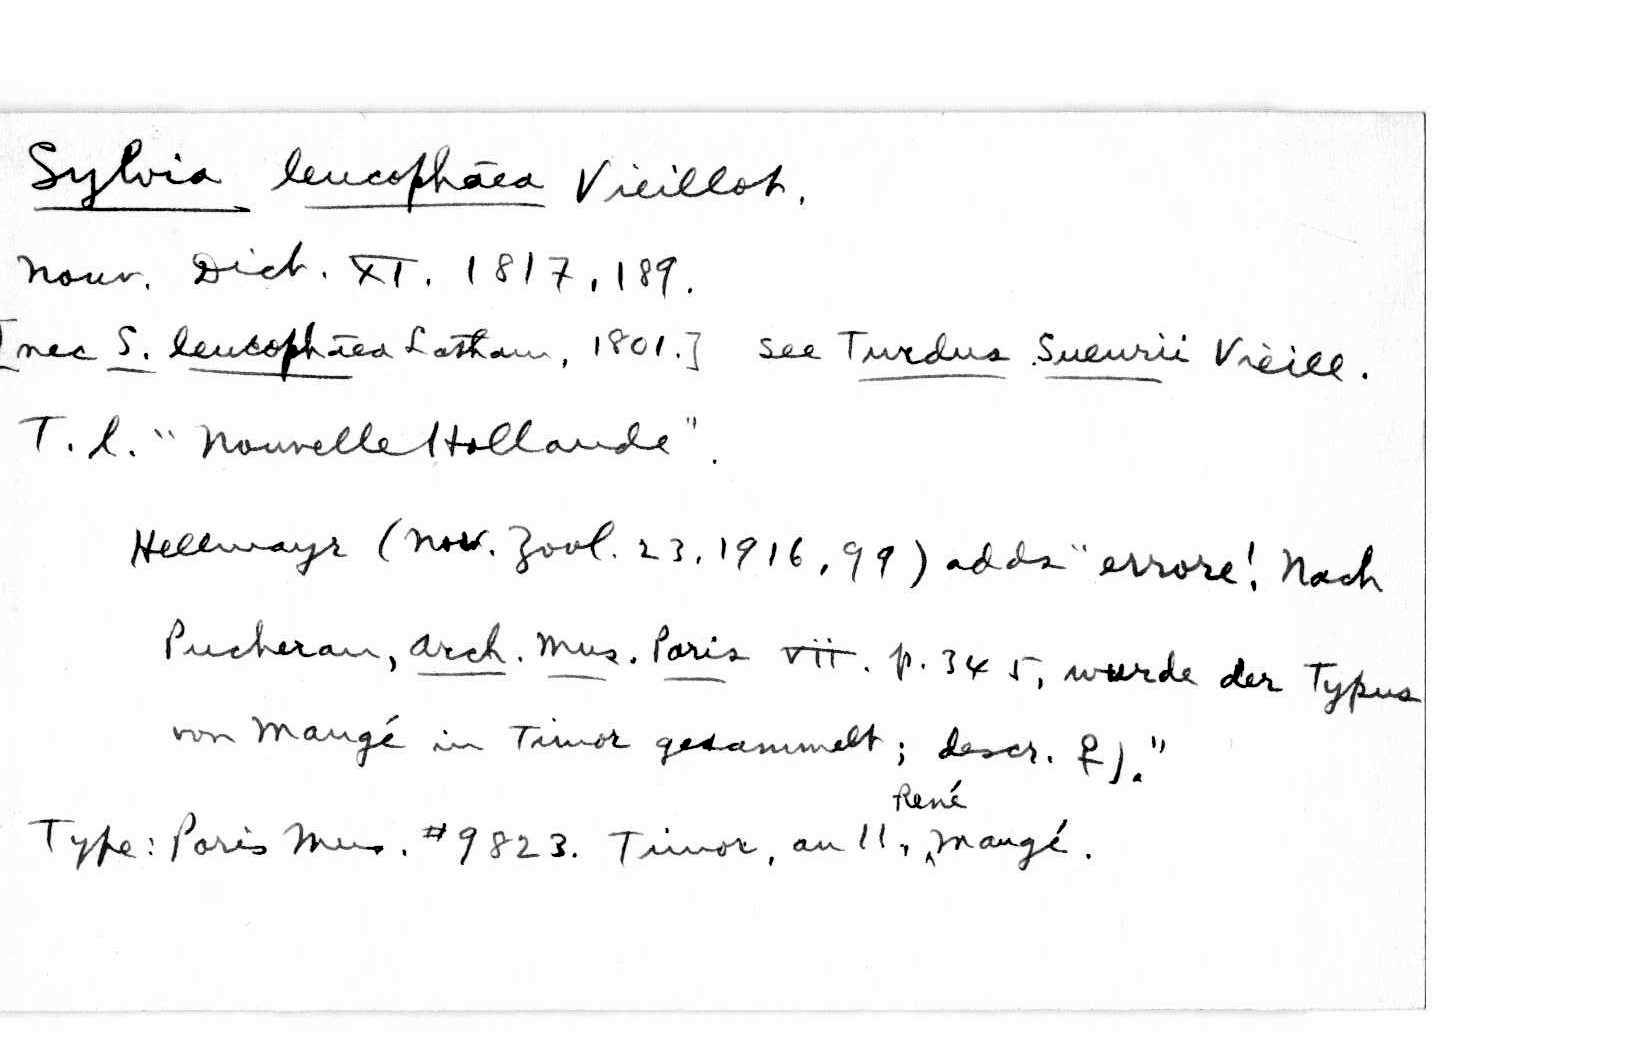 Sylvia leucophaea Vieillot.
Nouv. Dict. XI. 1817, 189.
[nec S. leucophaea Latham, 1801.] see Turdus Sueurii Vieill.
T. l. "Nouvelle Hollande".
Hellmayr (Nov. Zool. 23, 1916, 99) adds "errore! Nach
Pucheran, Arch. Mus. Paris vii. p. 345, wurde der Typus
von Maugé in Timor gesammelt; descr. ♀)."
Type: Paris Mus. #9823. Timor, an 11, René Maugé.